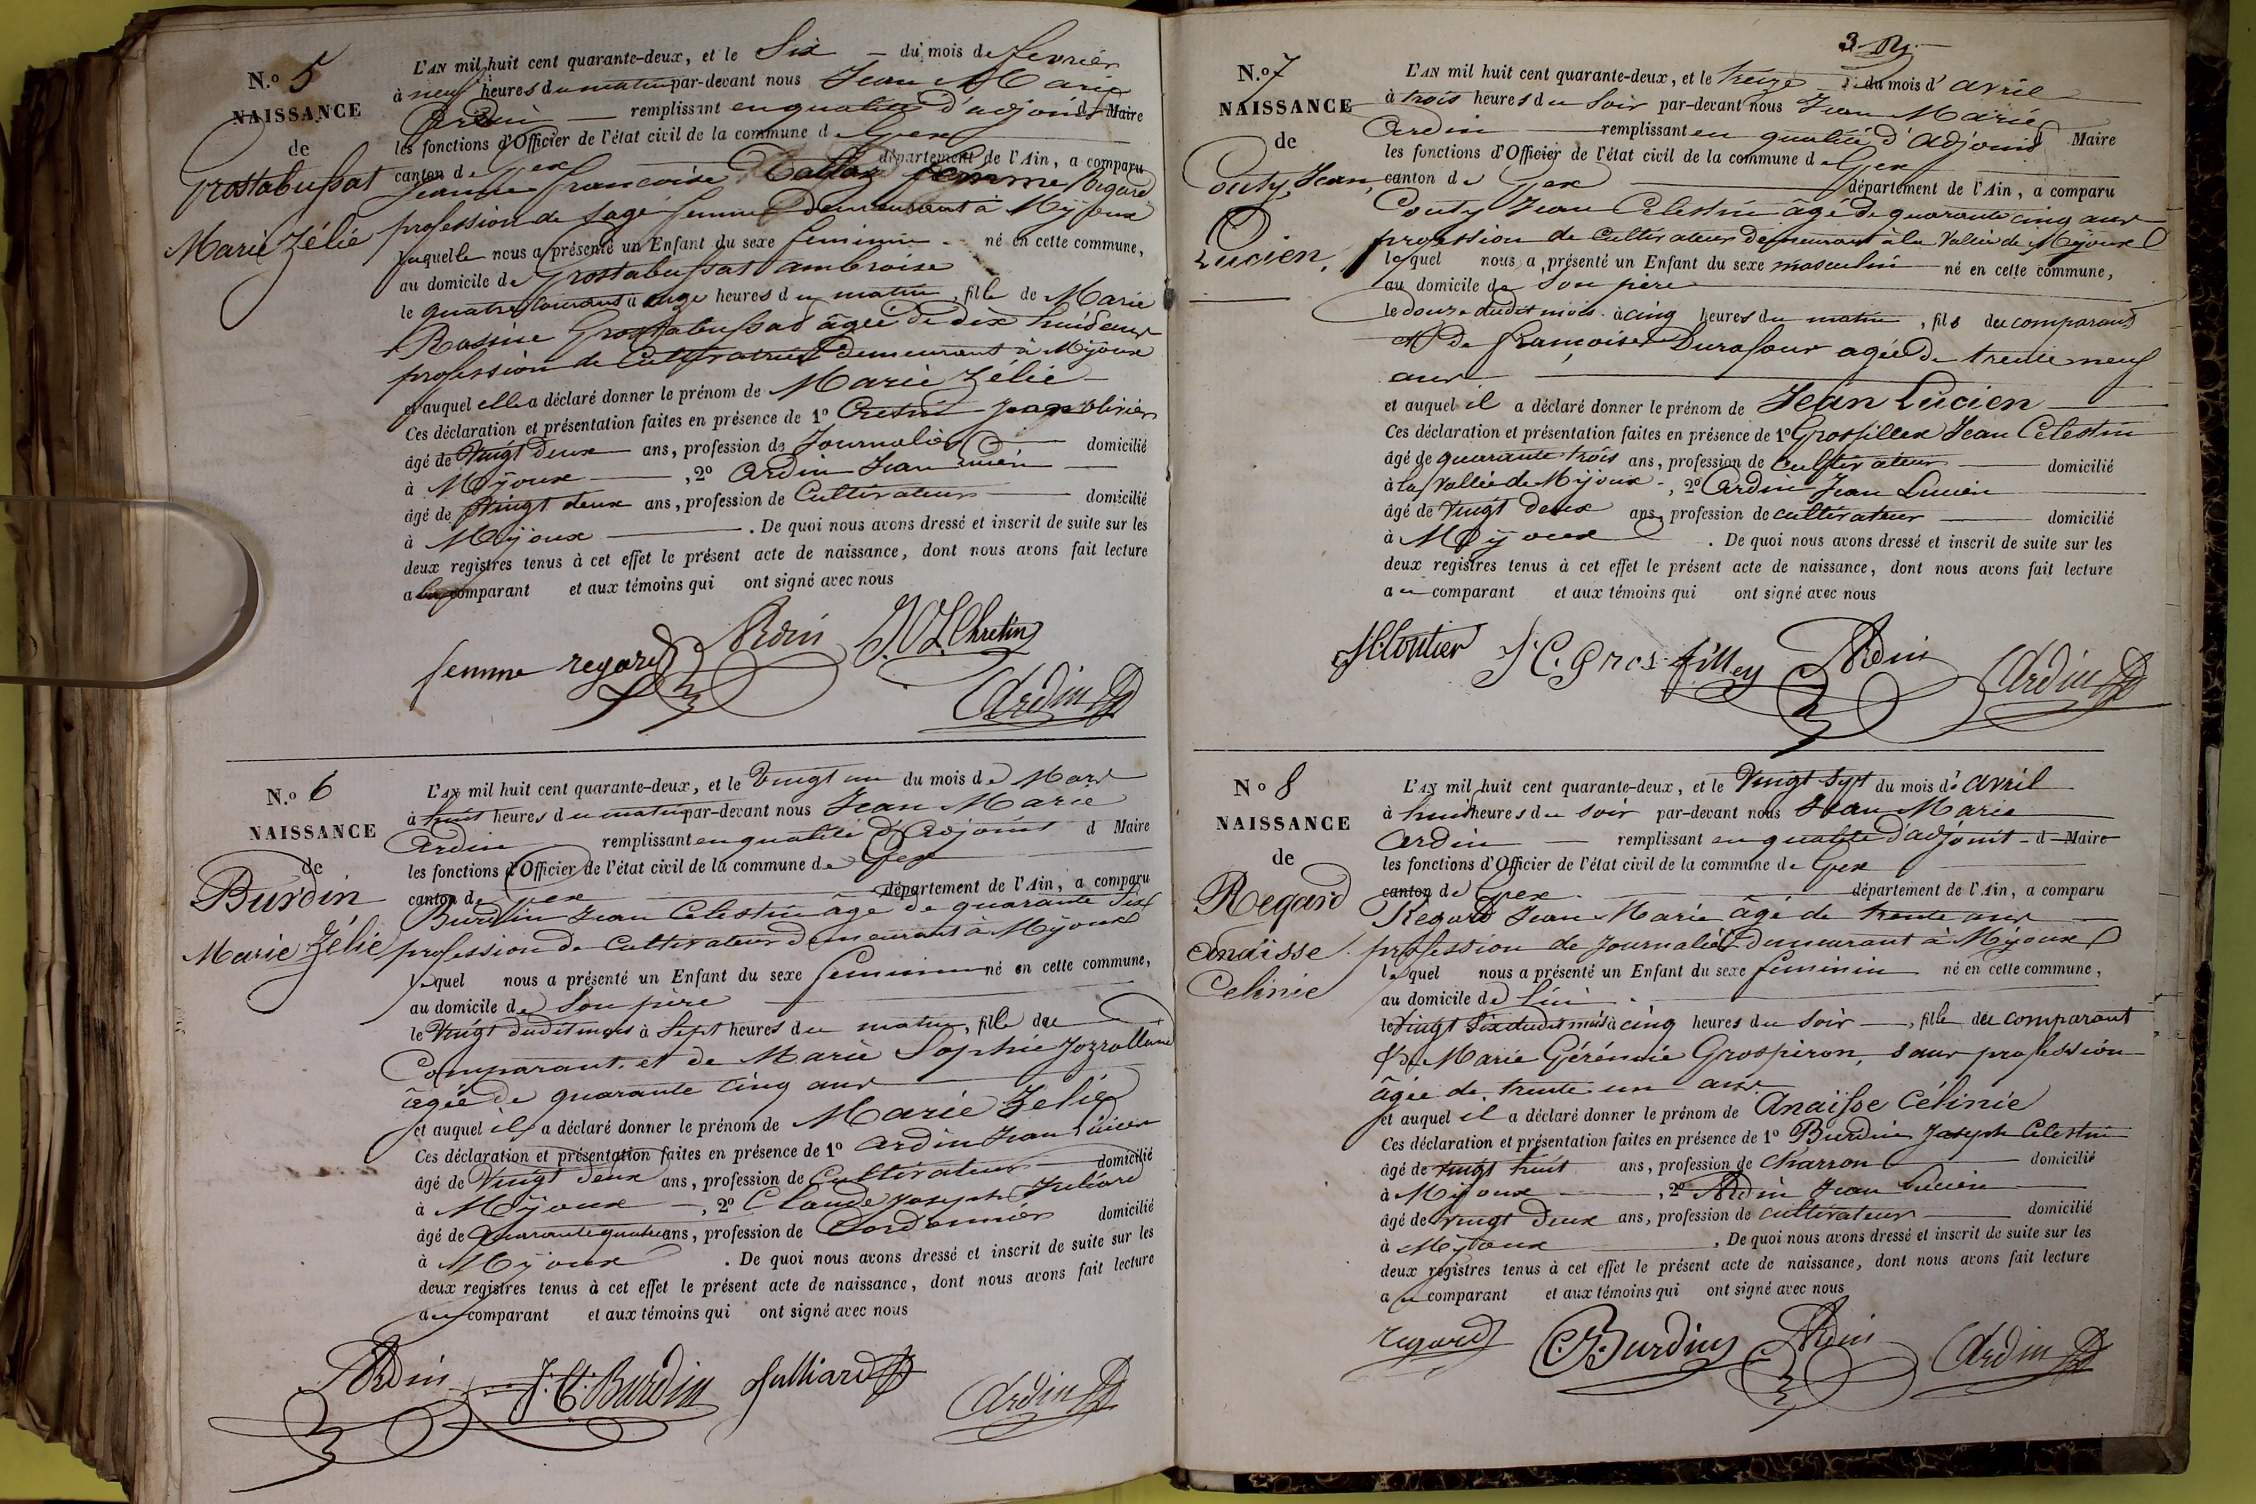 N.o 5
NAISSANCE
de
Grostabussat
Marie Zélie
L'AN mil huit cent quarante-deux, et le Six du mois de fevrier
à neuf heures du matin par-devant nous Jean Marie
Ardin remplissant en qualité d'adjoint d Maire
les fonctions d'Officier de l'état civil de la commune de Gex
canton de Gex département de l'Ain, a comparu
Jeanne françoise femme Regard
profession de sage femme demeurant à Mijoux
laquelle nous a présenté un Enfant du sexe feminin né en cette commune,
au domicile de Grostabussat ambroise
le quatre courant à onze heures du matin, fille de Marie
Rosine Grostabussat âgée de dix huit ans
profession de Cultivatrice demeurant à Mijoux
et auquel elle a déclaré donner le prénom de Marie Zélie
Ces déclaration et présentation faites en présence de 1o Cretin
âgé de Vingt deux ans, profession de Journalier domicilié
à Mijoux, 2o Ardin Jean Lucien
âgé de Vingt deux ans, profession de Cultivateur domicilié
à Mijoux. De quoi nous avons dressé et inscrit de suite sur les
deux registres tenus à cet effet le présent acte de naissance, dont nous avons fait lecture
a la comparant et aux témoins qui ont signé avec nous
femme regard Ardin Chretin
Ardin
N.o 6
NAISSANCE
de
Burdin
Marie Zélie
L'AN mil huit cent quarante-deux, et le Vingt un du mois de Mars
à huit heures du matin par-devant nous Jean Marie
Ardin remplissant en qualité d'Adjoint d Maire
les fonctions d'Officier de l'état civil de la commune de Gex
canton de Gex département de l'Ain, a comparu
Burdin Jean Celestin âgé de quarante six
profession de Cultivateur demeurant à Mijoux
lequel nous a présenté un Enfant du sexe feminin né en cette commune,
au domicile de Son père
le Vingt dudit mois à Sept heures du matin, fille du
Comparant, et de Marie Sophie
âgée de quarante cinq ans
et auquel il a déclaré donner le prénom de Marie Zelie
Ces déclaration et présentation faites en présence de 1o Ardin Jean Lucien
âgé de Vingt deux ans, profession de Cultivateur domicilié
à Mijoux, 2o Claude Joseph Juliard
âgé de Quarante quatre ans, profession de Cordonnier domicilié
à Mijoux. De quoi nous avons dressé et inscrit de suite sur les
deux registres tenus à cet effet le présent acte de naissance, dont nous avons fait lecture
au comparant et aux témoins qui ont signé avec nous
Ardin J. C. Burdin Julliard Ardin
3
N.o 7
NAISSANCE
de
Couty, Jean,
Lucien,
L'AN mil huit cent quarante-deux, et le treize du mois d'avril
à trois heures du Soir par-devant nous Jean Marie
Ardin remplissant en qualité d'Adjoint Maire
les fonctions d'Officier de l'état civil de la commune de Gex
canton de Gex département de l'Ain, a comparu
Couty Jean Celestin âgé de quarante cinq ans
profession de Cultivateur demeurant à la Vallée de Mijoux
lequel nous a présenté un Enfant du sexe masculin né en cette commune,
au domicile de Son père
le douze dudit mois à cinq heures du matin, fils du comparant
et de françoise Durafour agée de trente neuf
ans
et auquel il a déclaré donner le prénom de Jean Lucien
Ces déclaration et présentation faites en présence de 1o Grosfillex Jean Célestin
âgé de quarante trois ans, profession de cultivateur domicilié
à la Vallée de Mijoux, 2o Ardin Jean Lucien
âgé de Vingt Deux ans, profession de cultivateur domicilié
à Mijoux. De quoi nous avons dressé et inscrit de suite sur les
deux registres tenus à cet effet le présent acte de naissance, dont nous avons fait lecture
au comparant et aux témoins qui ont signé avec nous
J. C. Gros filley Ardin Ardin
No 8
NAISSANCE
de
Regard
Anaïsse
Celinie
L'AN mil huit cent quarante-deux, et le Vingt Sept du mois d'avril
à huit heures du soir par-devant nous Jean Marie
Ardin remplissant en qualité d'adjoint d Maire
les fonctions d'Officier de l'état civil de la commune de Gex
canton de Gex département de l'Ain, a comparu
Regard Jean Marie âgé de trente ans
profession de Journalier demeurant à Mijoux
lequel nous a présenté un Enfant du sexe feminin né en cette commune,
au domicile de Lui
le Vingt Six dudit mois à cinq heures du Soir, fille du comparant
& de Marie Gérémie Grospiron, sans profession
âgée de trente un ans
et auquel il a déclaré donner le prénom de Anaïsse Célinie
Ces déclaration et présentation faites en présence de 1o Burdin Joseph Celestin
âgé de vingt huit ans, profession de Charron domicilié
à Mijoux, 2o Ardin Jean Lucien
âgé de vingt deux ans, profession de cultivateur domicilié
à Mijoux, De quoi nous avons dressé et inscrit de suite sur les
deux registres tenus à cet effet le présent acte de naissance, dont nous avons fait lecture
au comparant et aux témoins qui ont signé avec nous
regard Burdin Ardin Ardin